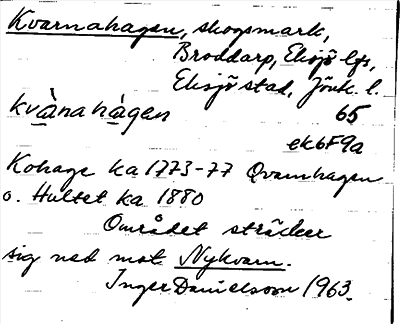 Kvarnahagen, skogsmark,
Broddarp, Eksjö lfs,
Eksjö stad, Jönk. l.
kvànahàgen 65
ek6F9a
Kohage ka 1773-77 Qvarnhagen
o. Hultet ka 1880
Området sträcker
sig ned mot Nykvarn.
Inger Danielsson 1963.